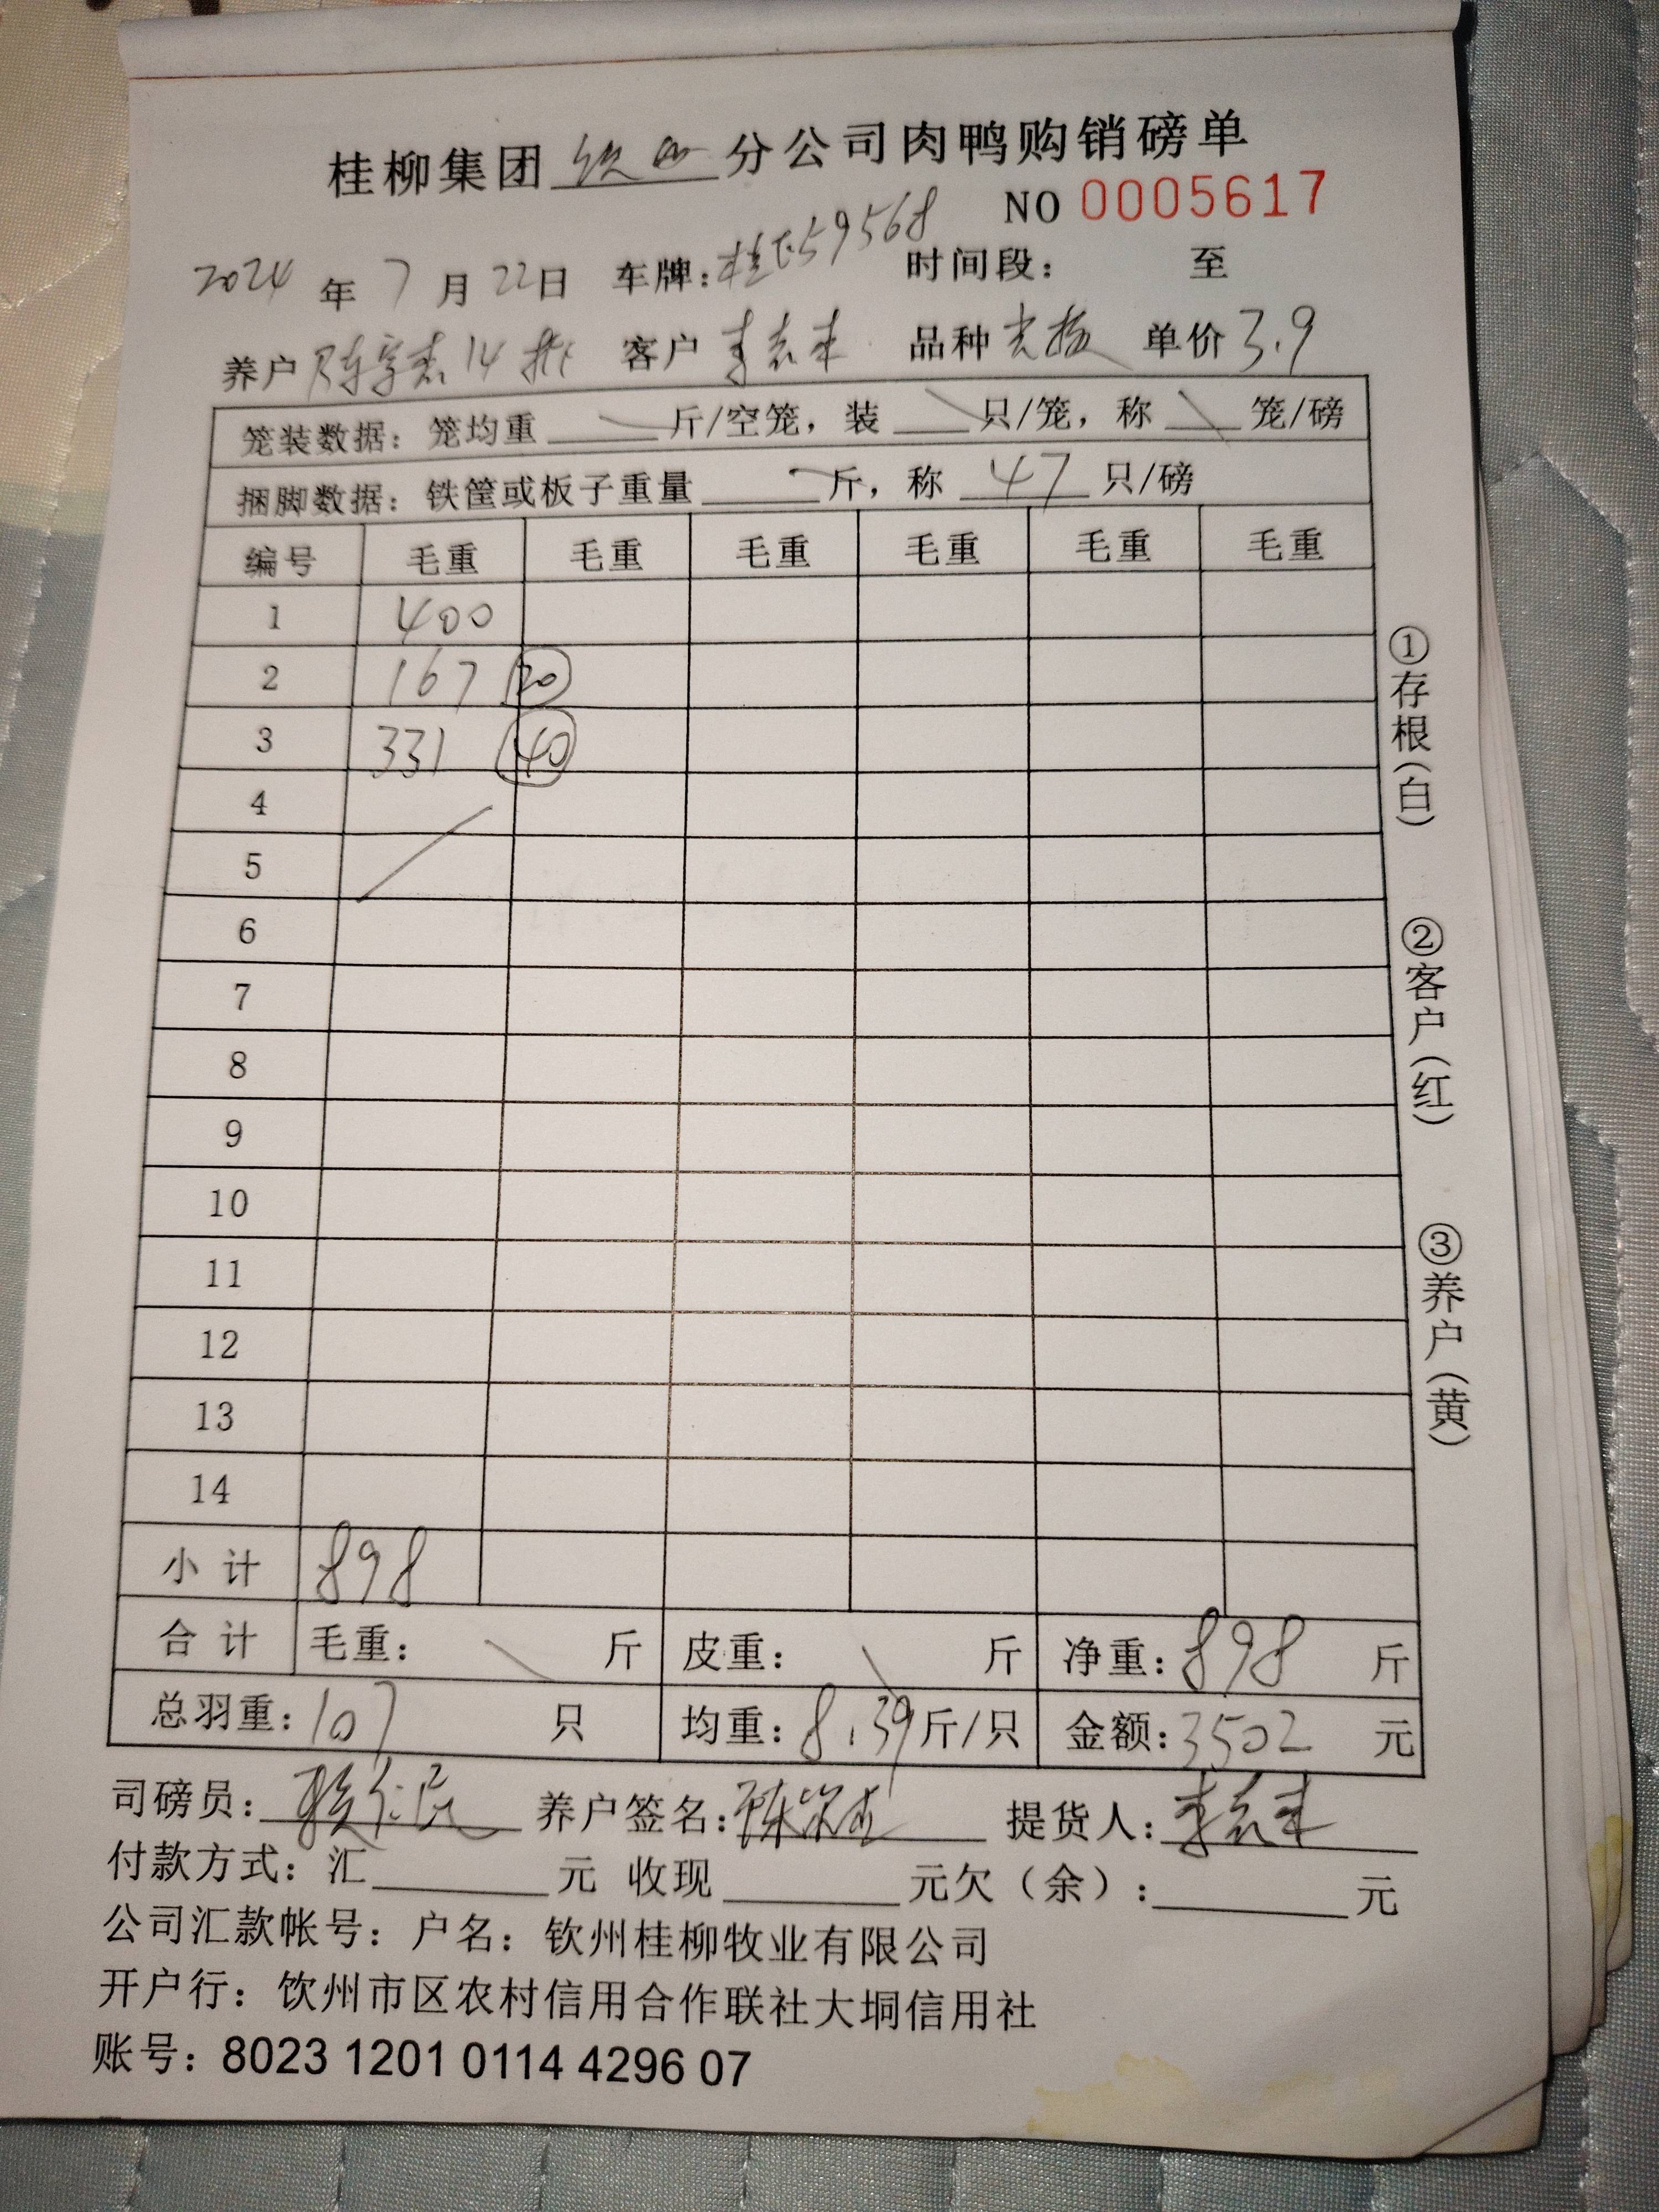 桂柳集团 钦州 分公司肉鸭购销磅单
NO 0005617
2024 年 7 月 22 日 车牌: 桂 59568 时间段: 至
养户 陈 14 客户 李 品种 单价 3.9
笼装数据: 笼均重 斤/空笼, 装 只/笼, 称 笼/磅
捆脚数据: 铁筐或板子重量 斤, 称 47 只/磅
编号 毛重 毛重 毛重 毛重 毛重 毛重
1 400
2 167 20
3 331 40
4
5
6
7
8
9
10
11
12
13
14
小计 898
合计 毛重: 斤 皮重: 斤 净重: 898 斤
总羽重: 107 只 均重: 8.39 斤/只 金额: 3502 元
司磅员: 养户签名: 陈 提货人: 李
付款方式: 汇 元 收现 元欠(余): 元
公司汇款帐号: 户名: 钦州桂柳牧业有限公司
开户行: 钦州市区农村信用合作联社大垌信用社
账号: 8023 1201 0114 4296 07
①存根(白)
②客户(红)
③养户(黄)